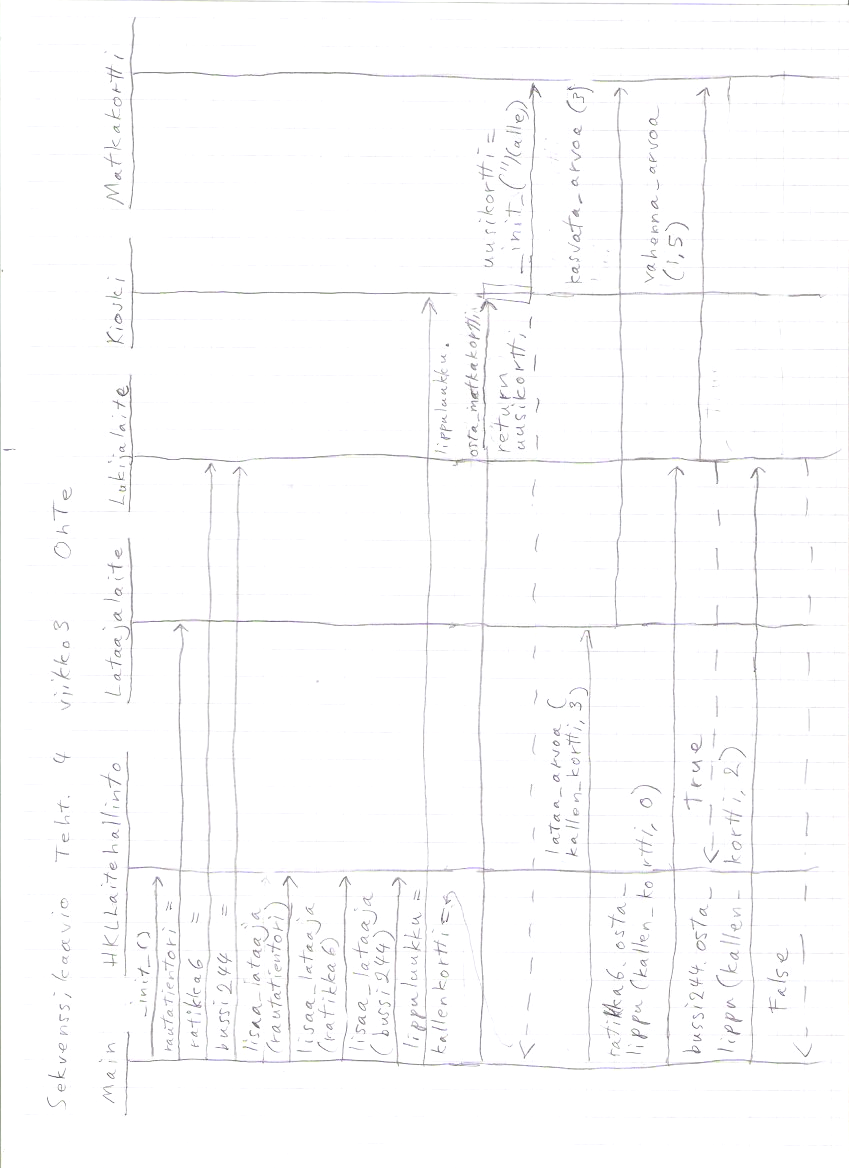 Sekvenssikaavio Teht. 4 viikko3 OhTe
Main HKLLaitehallinto Lataajalaite Lukijalaite Kioski Matkakortti
_init_()
rautatientori =
ratikka6 =
bussi244 =
lisaa_lataaja
(rautatientori)
lisaa_lataaja
(ratikka6)
lisaa_lataaja
(bussi244)
lippuluukku =
kallenkortti =
lippuluukku.
osta_matkakortti
return
uusikortti
uusikortti =
_init_(")(alle,)
lataa_arvoa (
kallen_kortti, 3)
kasvata_arvoa (3)
ratikka6.osta_
lippu (kallen_kortti, 0)
vahenna_arvoa
(1,5)
True
bussi244.osta_
lippu (kallen_kortti, 2)
False